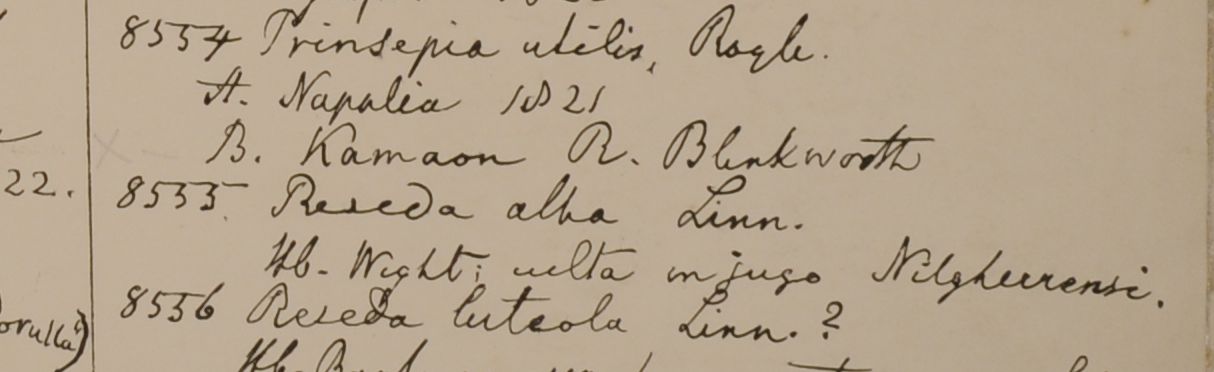 8554 Prinsepia utilis, Royle.
A. Napalia 1821
B. Kamaon R. Blinkworth
22.
8555 Reseda alba Linn.
Hb. Wight; culta in jugo Nilgheerensi.
8556 Reseda luteola Linn.?